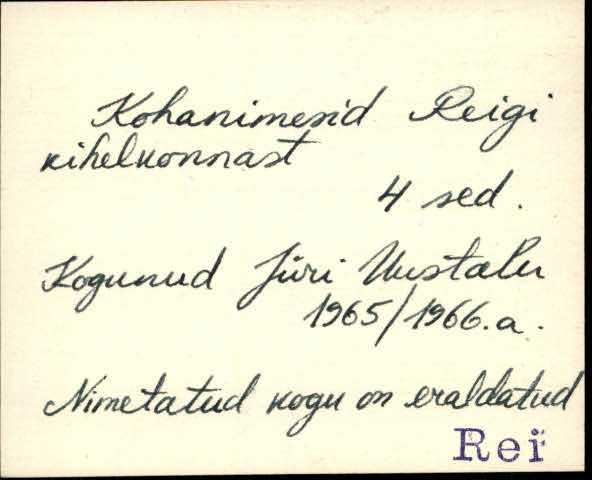 Kohanimesid Reigi
kihelkonnast
4 sed.
Kogunud Jüri Uustalu
1965/1966.a.
Nimetatud kogu on eraldatud
Rei